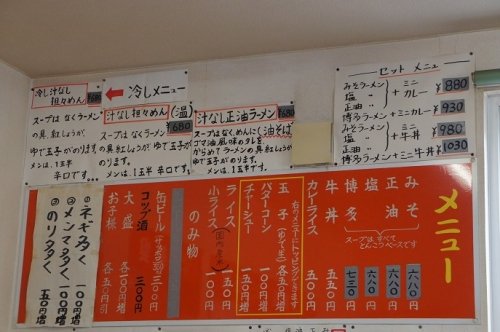 冷し汁なし
担々めん
¥680
スープはなく
の具、紅しょうが、
ゆで玉子がのります。
メンは、1玉半
辛口です…
← 冷しメニュー
汁なし担々めん (温)
¥680
スープはなく
の具、紅しょうが、
ゆで玉子がの
ります。
メンは、1玉半 辛口です…
汁なし正油ラーメン
¥680
(油そば)
スープはなく、めんに
ゴマ油風味のタレを
からめてラーメンの具、紅しょうが
ゆで玉子がのります。
メンは、1玉半です。
セット メニュー
みそラーメン
塩 〃
正油 〃
+ ミニカレー
¥880
博多ラーメン+ミニカレー
¥930
みそラーメン
塩 〃
正油 〃
+ ミニ牛丼
¥980
博多ラーメン+ミニ牛丼
¥1030
メニュー
みそ 六八〇
正油 六八〇
塩 六八〇
博多 七三〇
スープは すべて
とんこつベースです
牛丼 五五〇
カレーライス 五五〇
右のメニューにトッピングとなります
玉子(ゆで、生) 各五〇円増
バターコーン 一〇〇円増
チャーシュー
ライス 一五〇
小ライス 一〇〇
のみ物
缶ビール 三〇〇
コップ酒 三〇〇
大盛 各一〇〇円増
お子様 各五〇引
①ネギ多く 一〇〇円増
②メンマ多く 一〇〇円増
③のり多く 五〇円増